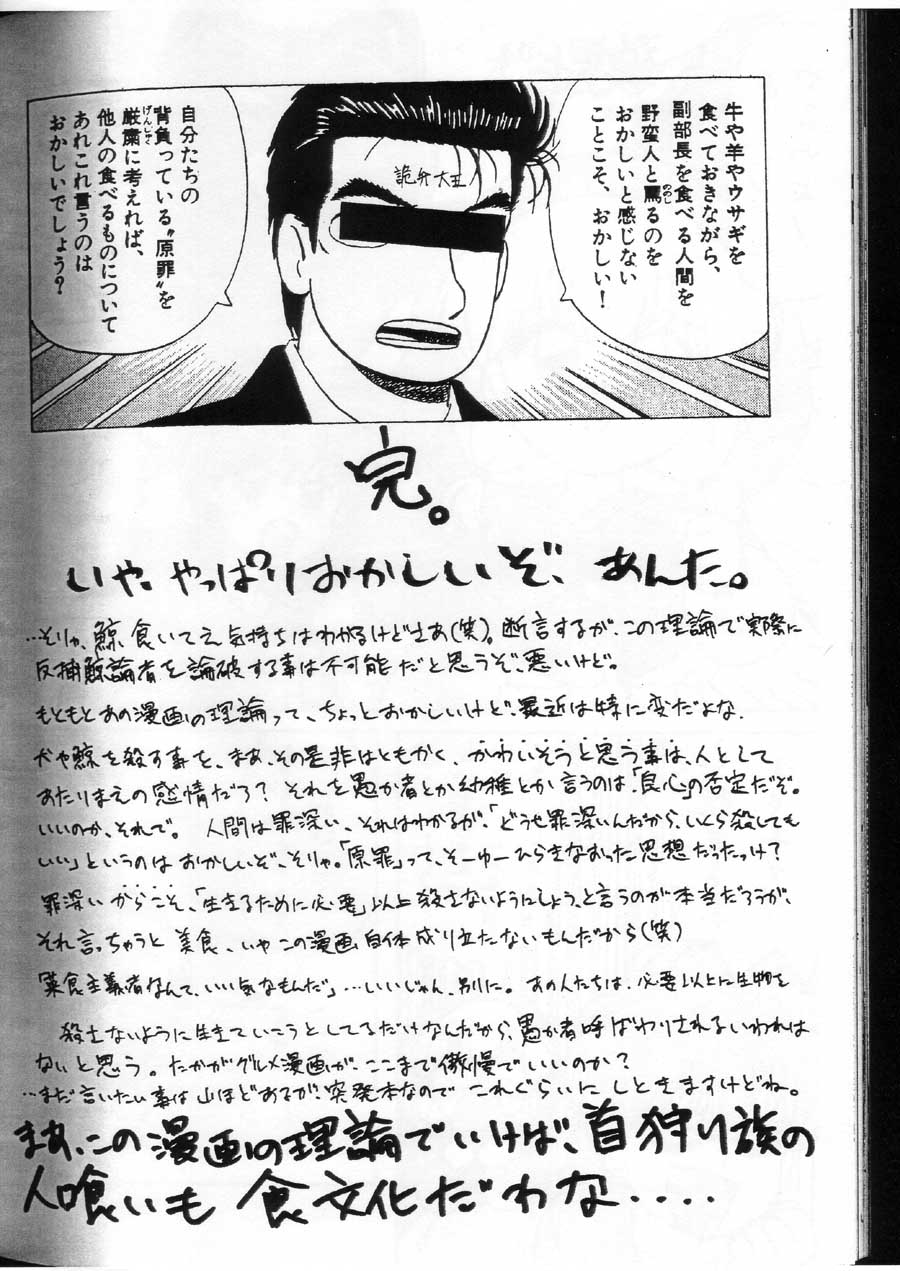 牛や羊やウサギを
食べておきながら、
副部長を食べる人間を
野蛮人と罵るのを
おかしいと感じない
ことこそ、おかしい!
ののし
詭弁大王人
自分たちの
背負っている“原罪”を
厳粛に考えれば、
他人の食べるものについて
あれこれ言うのは
おかしいでしょう?
げんしゅく
完。
いや、やっぱりおかしいぞ、あんた。
…そりゃ、鯨食いてえ気持ちはわかるけどさあ(笑)。断言するが、この理論で実際に
反捕鯨論者を論破する事は不可能だと思うぞ、悪いけど。
もともとあの漫画の理論って、ちょっとおかしいけど、最近は特に変だよな.
犬や鯨を殺す事を、まあ、その是非はともかく、かわいそうと思う事は、人として
あたりまえの感情だろ?それを愚か者とか幼稚とか言うのは、「良心」の否定だぞ。
いいのか、それで。人間は罪深い、それはわかるが、「どうせ罪深いんだから、いくら殺しても
いい」というのはおかしいぞ、そりゃ。「原罪」って、そーゆーひらきなおった思想だったっけ?
罪深いからこそ、「生きるために必要」以上殺さないようにしよう、と言うのが本当だろうが、
それ言っちゃうと美食、いやこの漫画自体成り立たないもんだから(笑)
「菜食主義者なんて、いい気なもんだ」…いいじゃん、別に。あの人たちは、必要以上に生物を
殺さないように生きていこうとしてるだけなんだから、愚か者呼ばわりされるいわれは
ないと思う。たかがグルメ漫画が、ここまで傲慢でいいのか?
…まだ言いたい事は山ほどあるが、突発本なので これぐらいにしときますけどね。
まあ、この漫画の理論でいけば、首狩り族の
人喰いも食文化だわな....